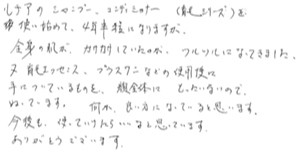 ルチアのシャンプー、コンディショナー (育毛シリーズ)を
使い始めて、4年半程になりますが、
全身の肌が、カサカサしていたのが、ツルツルになってきました。
又育毛エッセンス、プラスワンなどの使用後に
手についているものを、顔全体に もったいないので、
ぬっています。 何か、良い方になっていると思います。
今後も、使っていけたらいいなと思っています。
ありがとうございます。